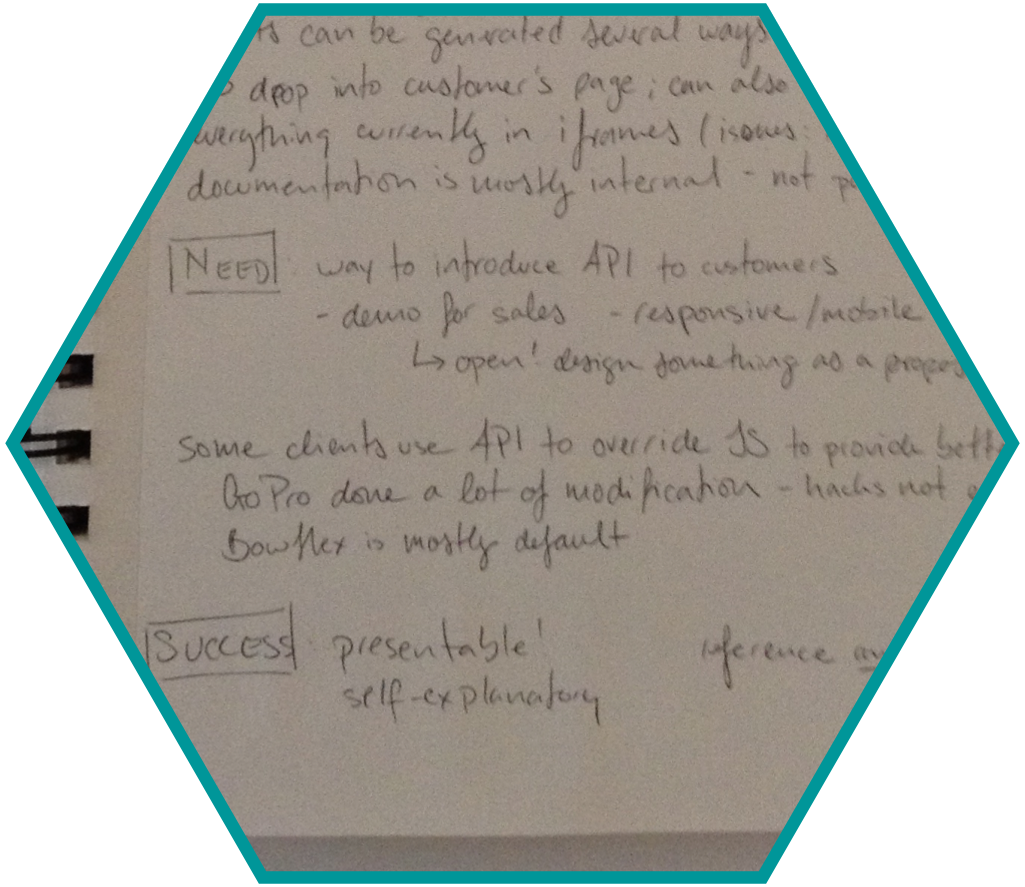 can be generated several ways
drop into customer's page; can also
everything currently in iframes (issues:
documentation is mostly internal - not
NEED : way to introduce API to customers
- demo for sales - responsive/mobile
↳ open! design something as a
some clients use API to override JS to provide
GoPro done a lot of modification - hacks not
Bowflex is mostly default
SUCCESS : presentable! reference
self-explanatory